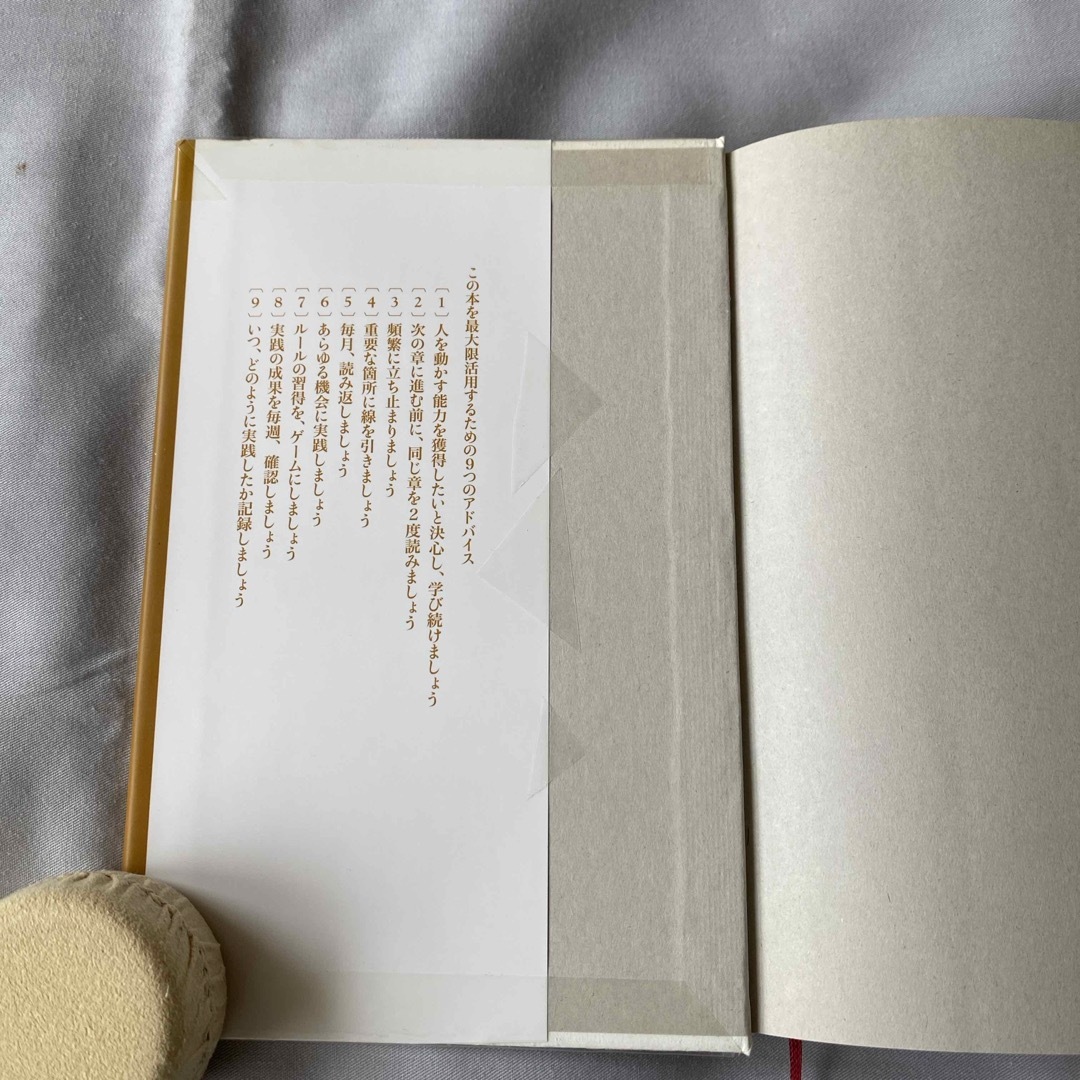 この本を最大限活用するための9つのアドバイス
〔1〕人を動かす能力を獲得したいと決心し、学び続けましょう
〔2〕次の章に進む前に、同じ章を2度読みましょう
〔3〕頻繁に立ち止まりましょう
〔4〕重要な箇所に線を引きましょう
〔5〕毎月、読み返しましょう
〔6〕あらゆる機会に実践しましょう
〔7〕ルールの習得を、ゲームにしましょう
〔8〕実践の成果を毎週、確認しましょう
〔9〕いつ、どのように実践したか記録しましょう